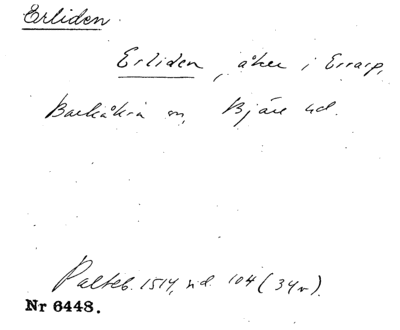 Erliden.
Erliden, åker i Errarp,
Barkåkra sn, Bjäre hd.
Palteb. 1514, sid. 104 (34v).
Nr 6448.